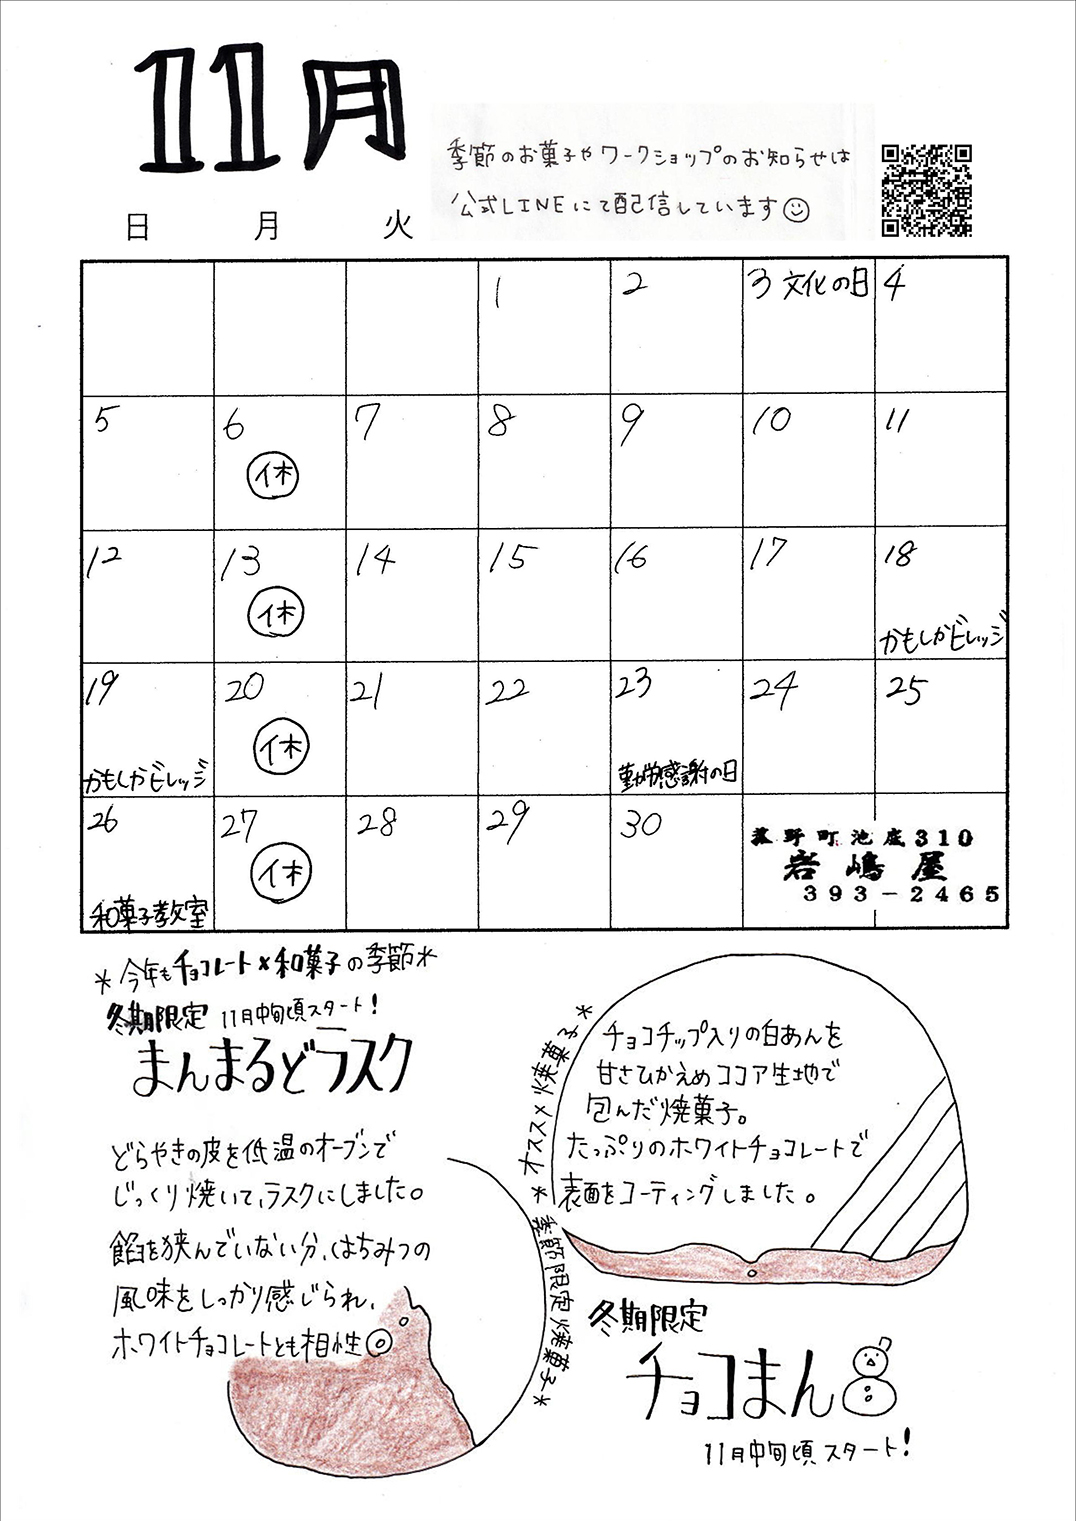 11月
季節のお菓子やワークショップのお知らせは
公式LINEにて配信しています
日 月 火
1 2 3 文化の日 4
5 6 7 8 9 10 11
休
12 13 14 15 16 17 18
休
かもしかビレッジ
19 20 21 22 23 24 25
休
かもしかビレッジ 勤労感謝の日
26 27 28 29 30
休
和菓子教室
菰野町池底310
岩嶋屋
393-2465
*今年もチョコレート×和菓子の季節*
冬期限定 11月中旬頃スタート!
まんまるどラスク
どらやきの皮を低温のオーブンで
じっくり焼いて、ラスクにしました。
餡を挟んでいない分、はちみつの
風味をしっかり感じられ、
ホワイトチョコレートとも相性◎
*季節限定焼菓子*
*オススメ焼菓子*
チョコチップ入りの白あんを
甘さひかえめココア生地で
包んだ焼菓子。
たっぷりのホワイトチョコレートで
表面をコーティングしました。
冬期限定
チョコまん
11月中旬頃スタート!